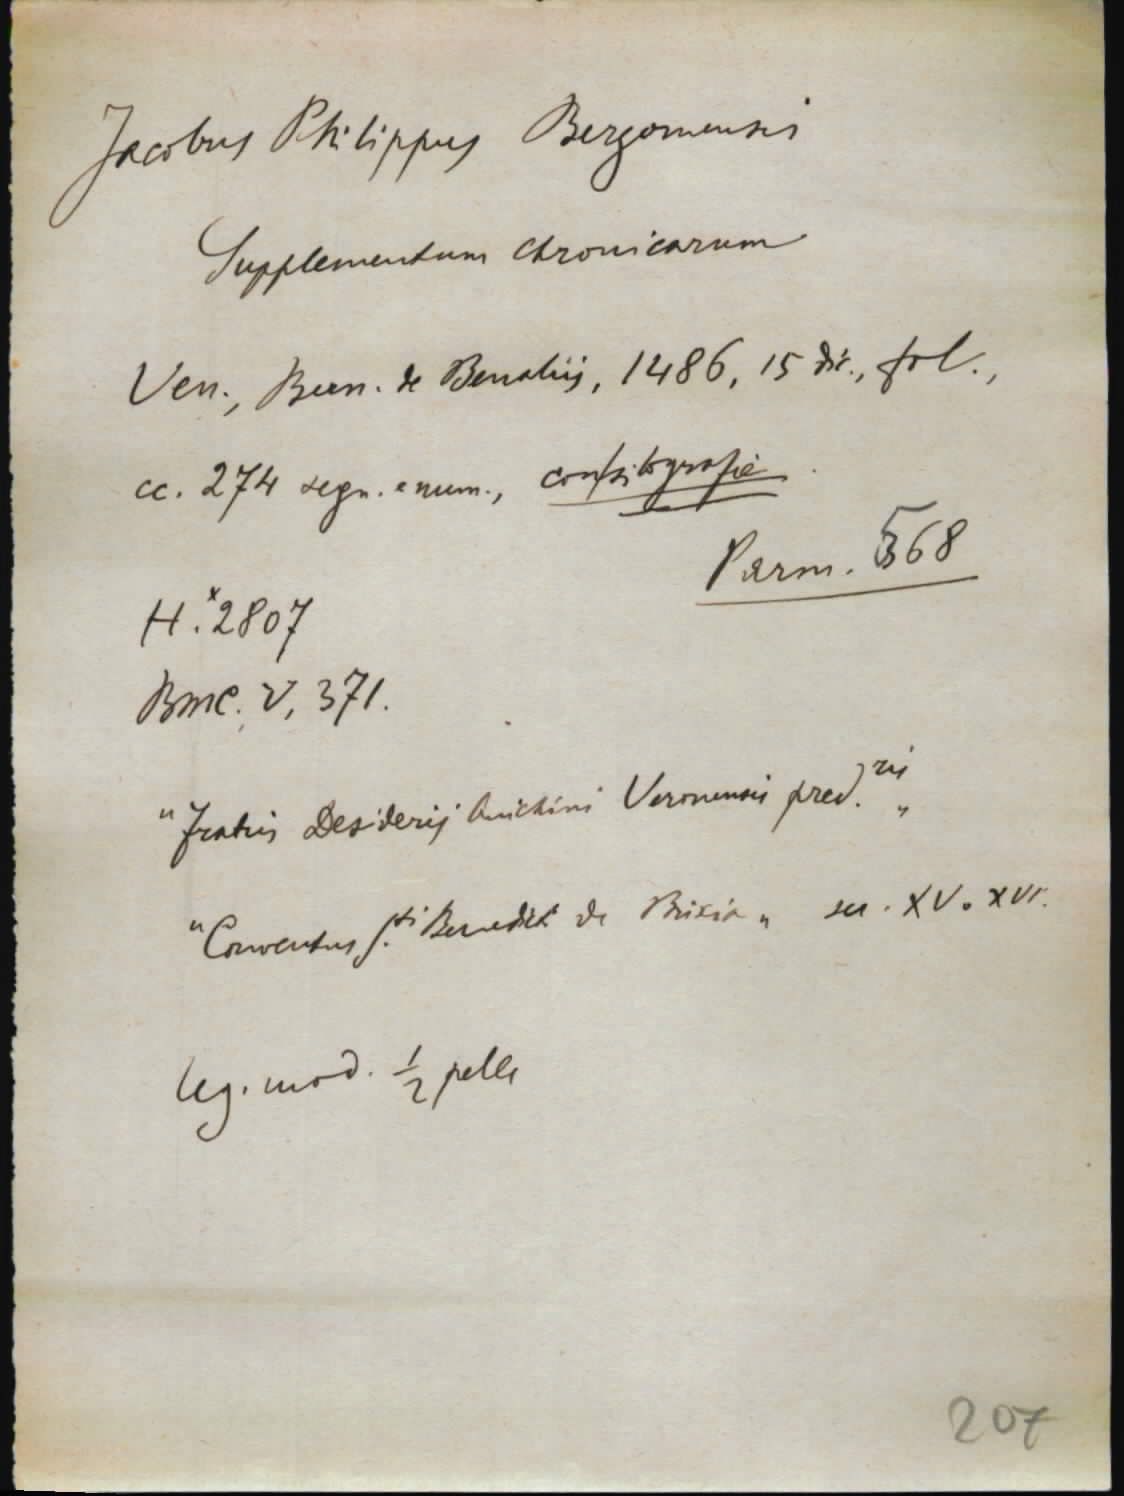 Jacobus Philippus Bergomensis
Supplementum chronicarum
Ven., Bern. de Benaliis, 1486, 15 dic., fol.,
cc. 274 segn. e num., con silografie.
Parm. 568
H.ˣ2807
BMC. V, 371.
"Fratris Desiderij Anichini Veronensis pred.ris"
"Conventus S.ti Benedicti de Brixia" sec. XV-XVI.
leg. mod. ½ pelle
207